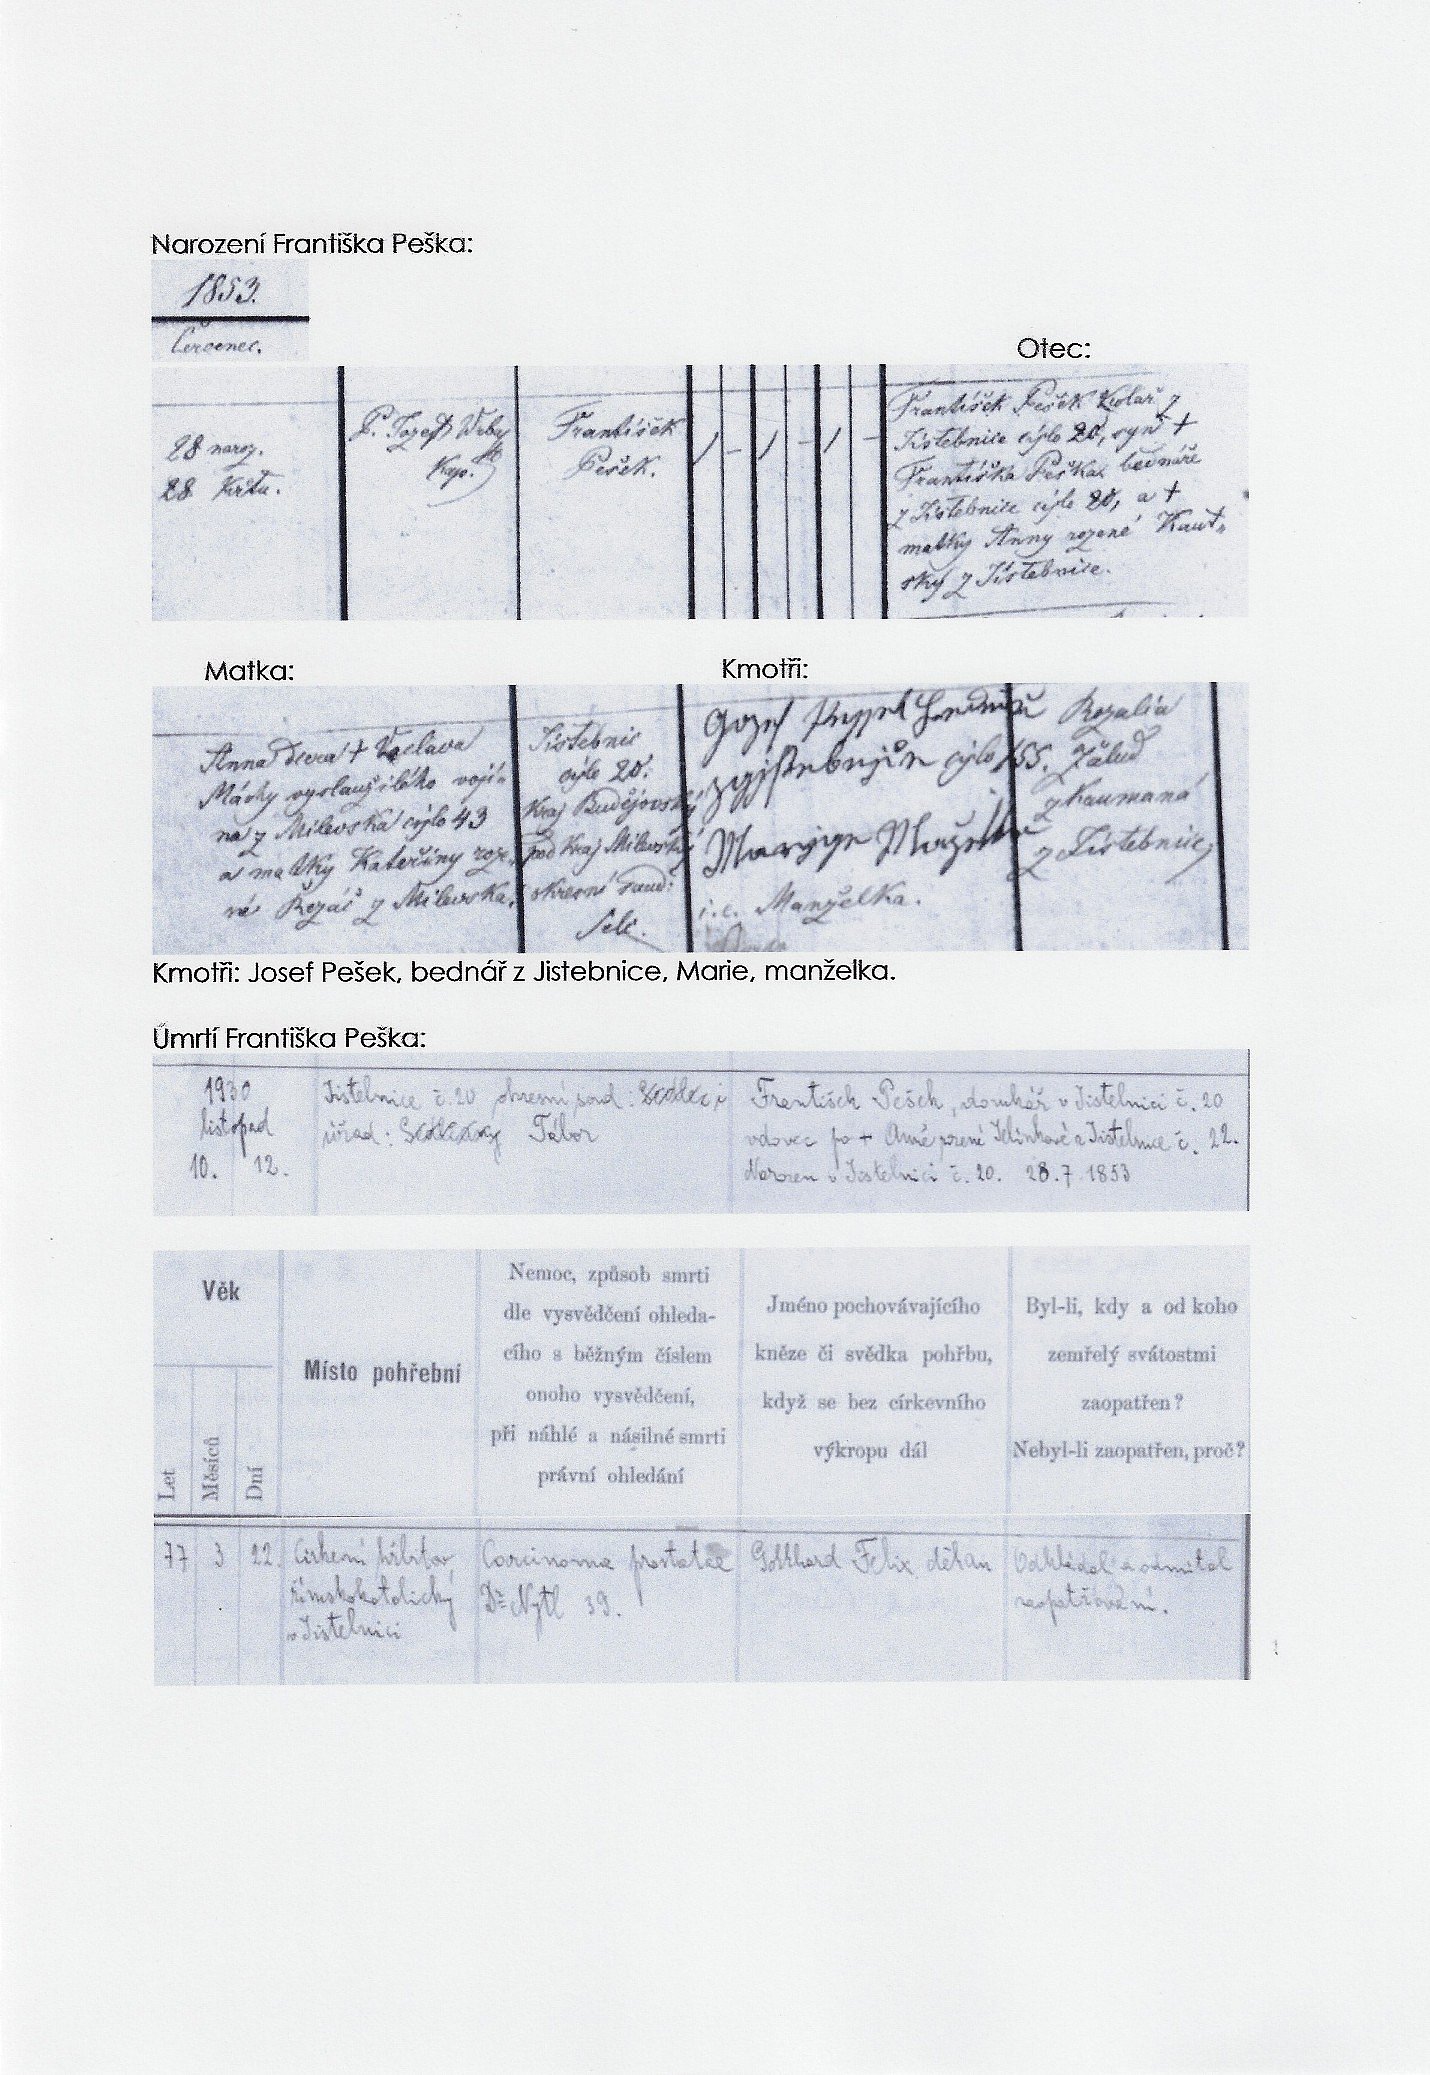 Narození Františka Peška:
1853.
Červenec.
Otec:
28 naroz.
28 Křtu.
P. Jozef
Kap.
František
Pešek.
František Pešek Kolář z
Jistebnice cýslo 20, syn †
Františka Peška bednáře
z Jistebnice cýslo 20, a †
matky Anny rozené Kaut-
sky z Jistebnice.
Matka:
Kmotři:
Anna dcera † Václava
Máchy vyslaužilého vojá-
na z Milevska cýslo 43
a matky Kateřiny roze-
né Řezáč z Milevska.
Jistebnic
cýslo 20.
Kraj Budějovský
pod Kraj Milevský
okresní saud:
Selc.
cýslo 155.
i.e. Manželka.
Rozalia
z Jistebnice
Kmotři: Josef Pešek, bednář z Jistebnice, Marie, manželka.
Úmrtí Františka Peška:
1930
listopad
10. 12.
Jistebnice č. 20 okresní soud: Sedlec i
úřad: Tábor
František Pešek, domkář v Jistebnici č. 20
vdovec po † Anně rozené Jelínkové z Jistebnice č. 22.
Narozen v Jistebnici č. 20. 28.7.1853
Věk
Let
Měsíců
Dní
Místo pohřební
Nemoc, způsob smrti
dle vysvědčení ohleda-
cího s běžným číslem
onoho vysvědčení,
při náhlé a násilné smrti
právní ohledání
Jméno pochovávajícího
kněze či svědka pohřbu,
když se bez církevního
výkropu dál
Byl-li, kdy a od koho
zemřelý svátostmi
zaopatřen?
Nebyl-li zaopatřen, proč?
77 3 22.
Církevní hřbitov
římskokatolický
v Jistebnici
Carcinoma prostatae
Dr 39.
Gotthard Felix děkan
Odkládal a odmítal
zaopatřování.